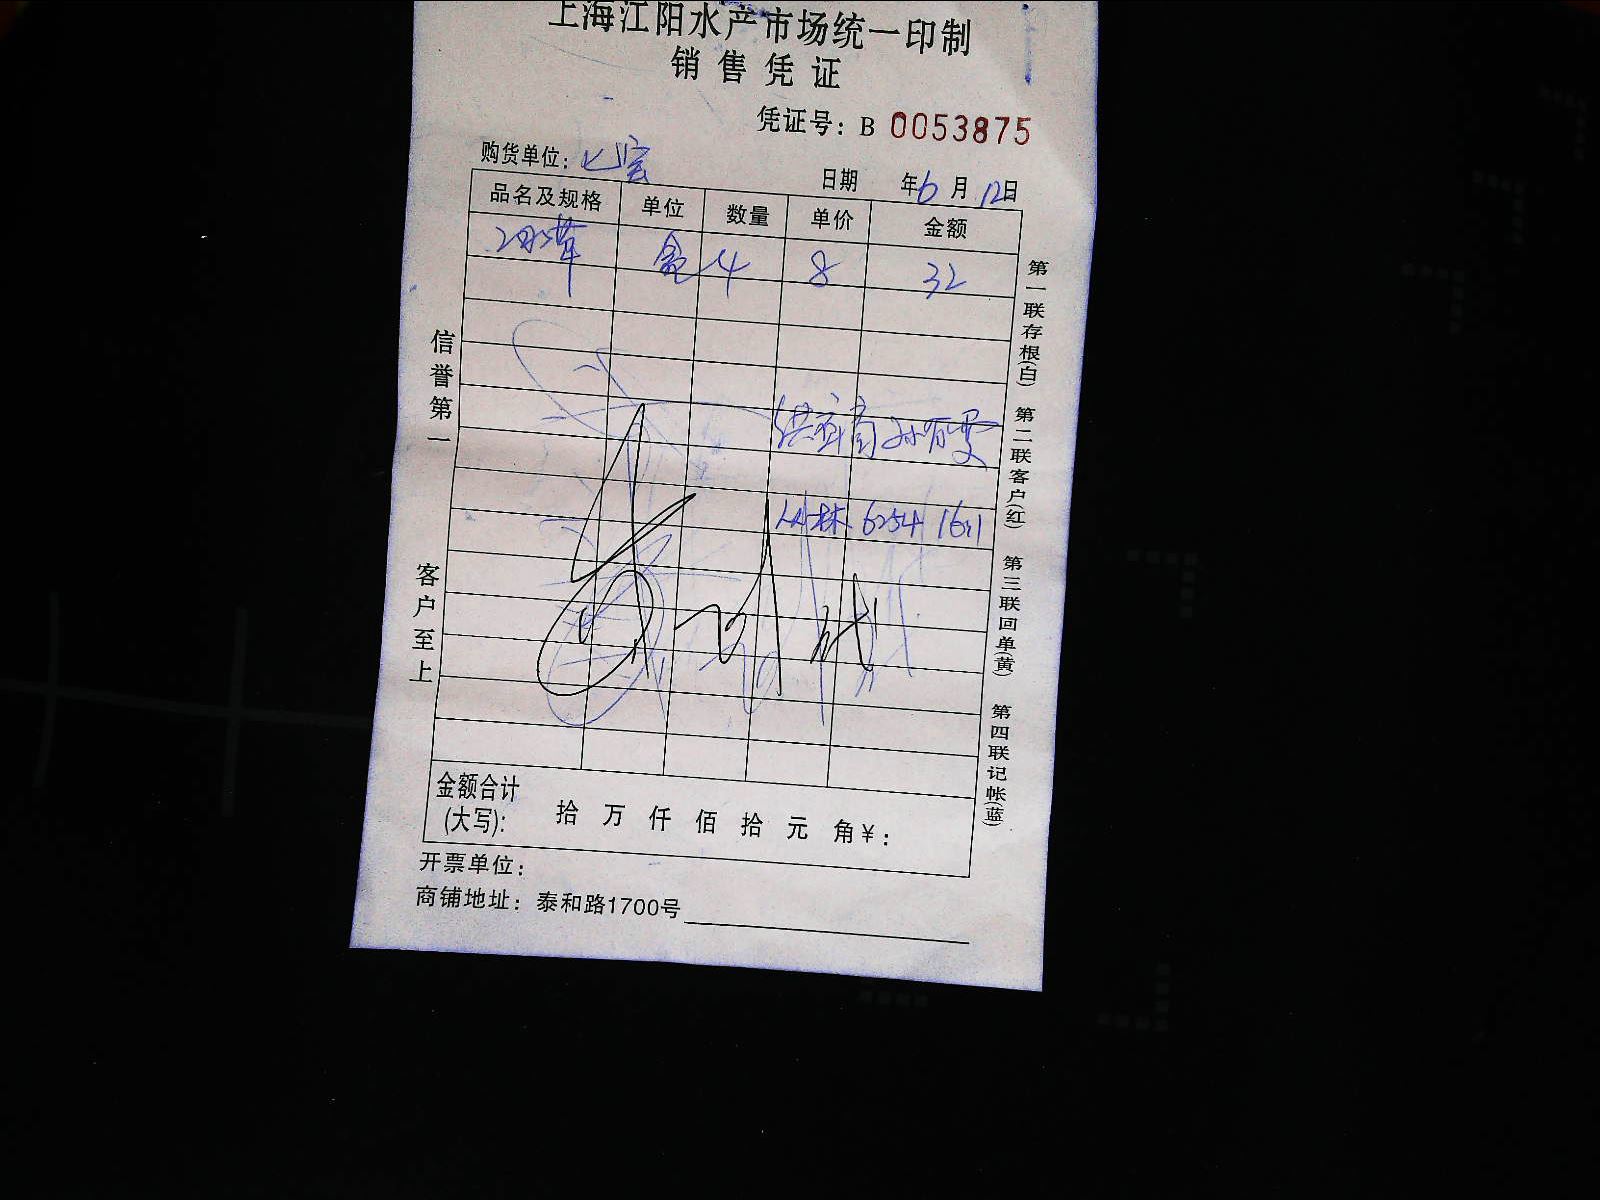 上海江阳水产市场统一印制
销售凭证
凭证号：B 0053875
购货单位：七宝
日期 年6月12日
品名及规格 单位 数量 单价 金额
盒 4 8 32
孙
林 6254 1611
信誉第一
客户至上
第一联存根(白)
第二联客户(红)
第三联回单(黄)
第四联记帐(蓝)
金额合计
(大写): 拾 万 仟 佰 拾 元 角￥:
开票单位:
商铺地址: 泰和路1700号